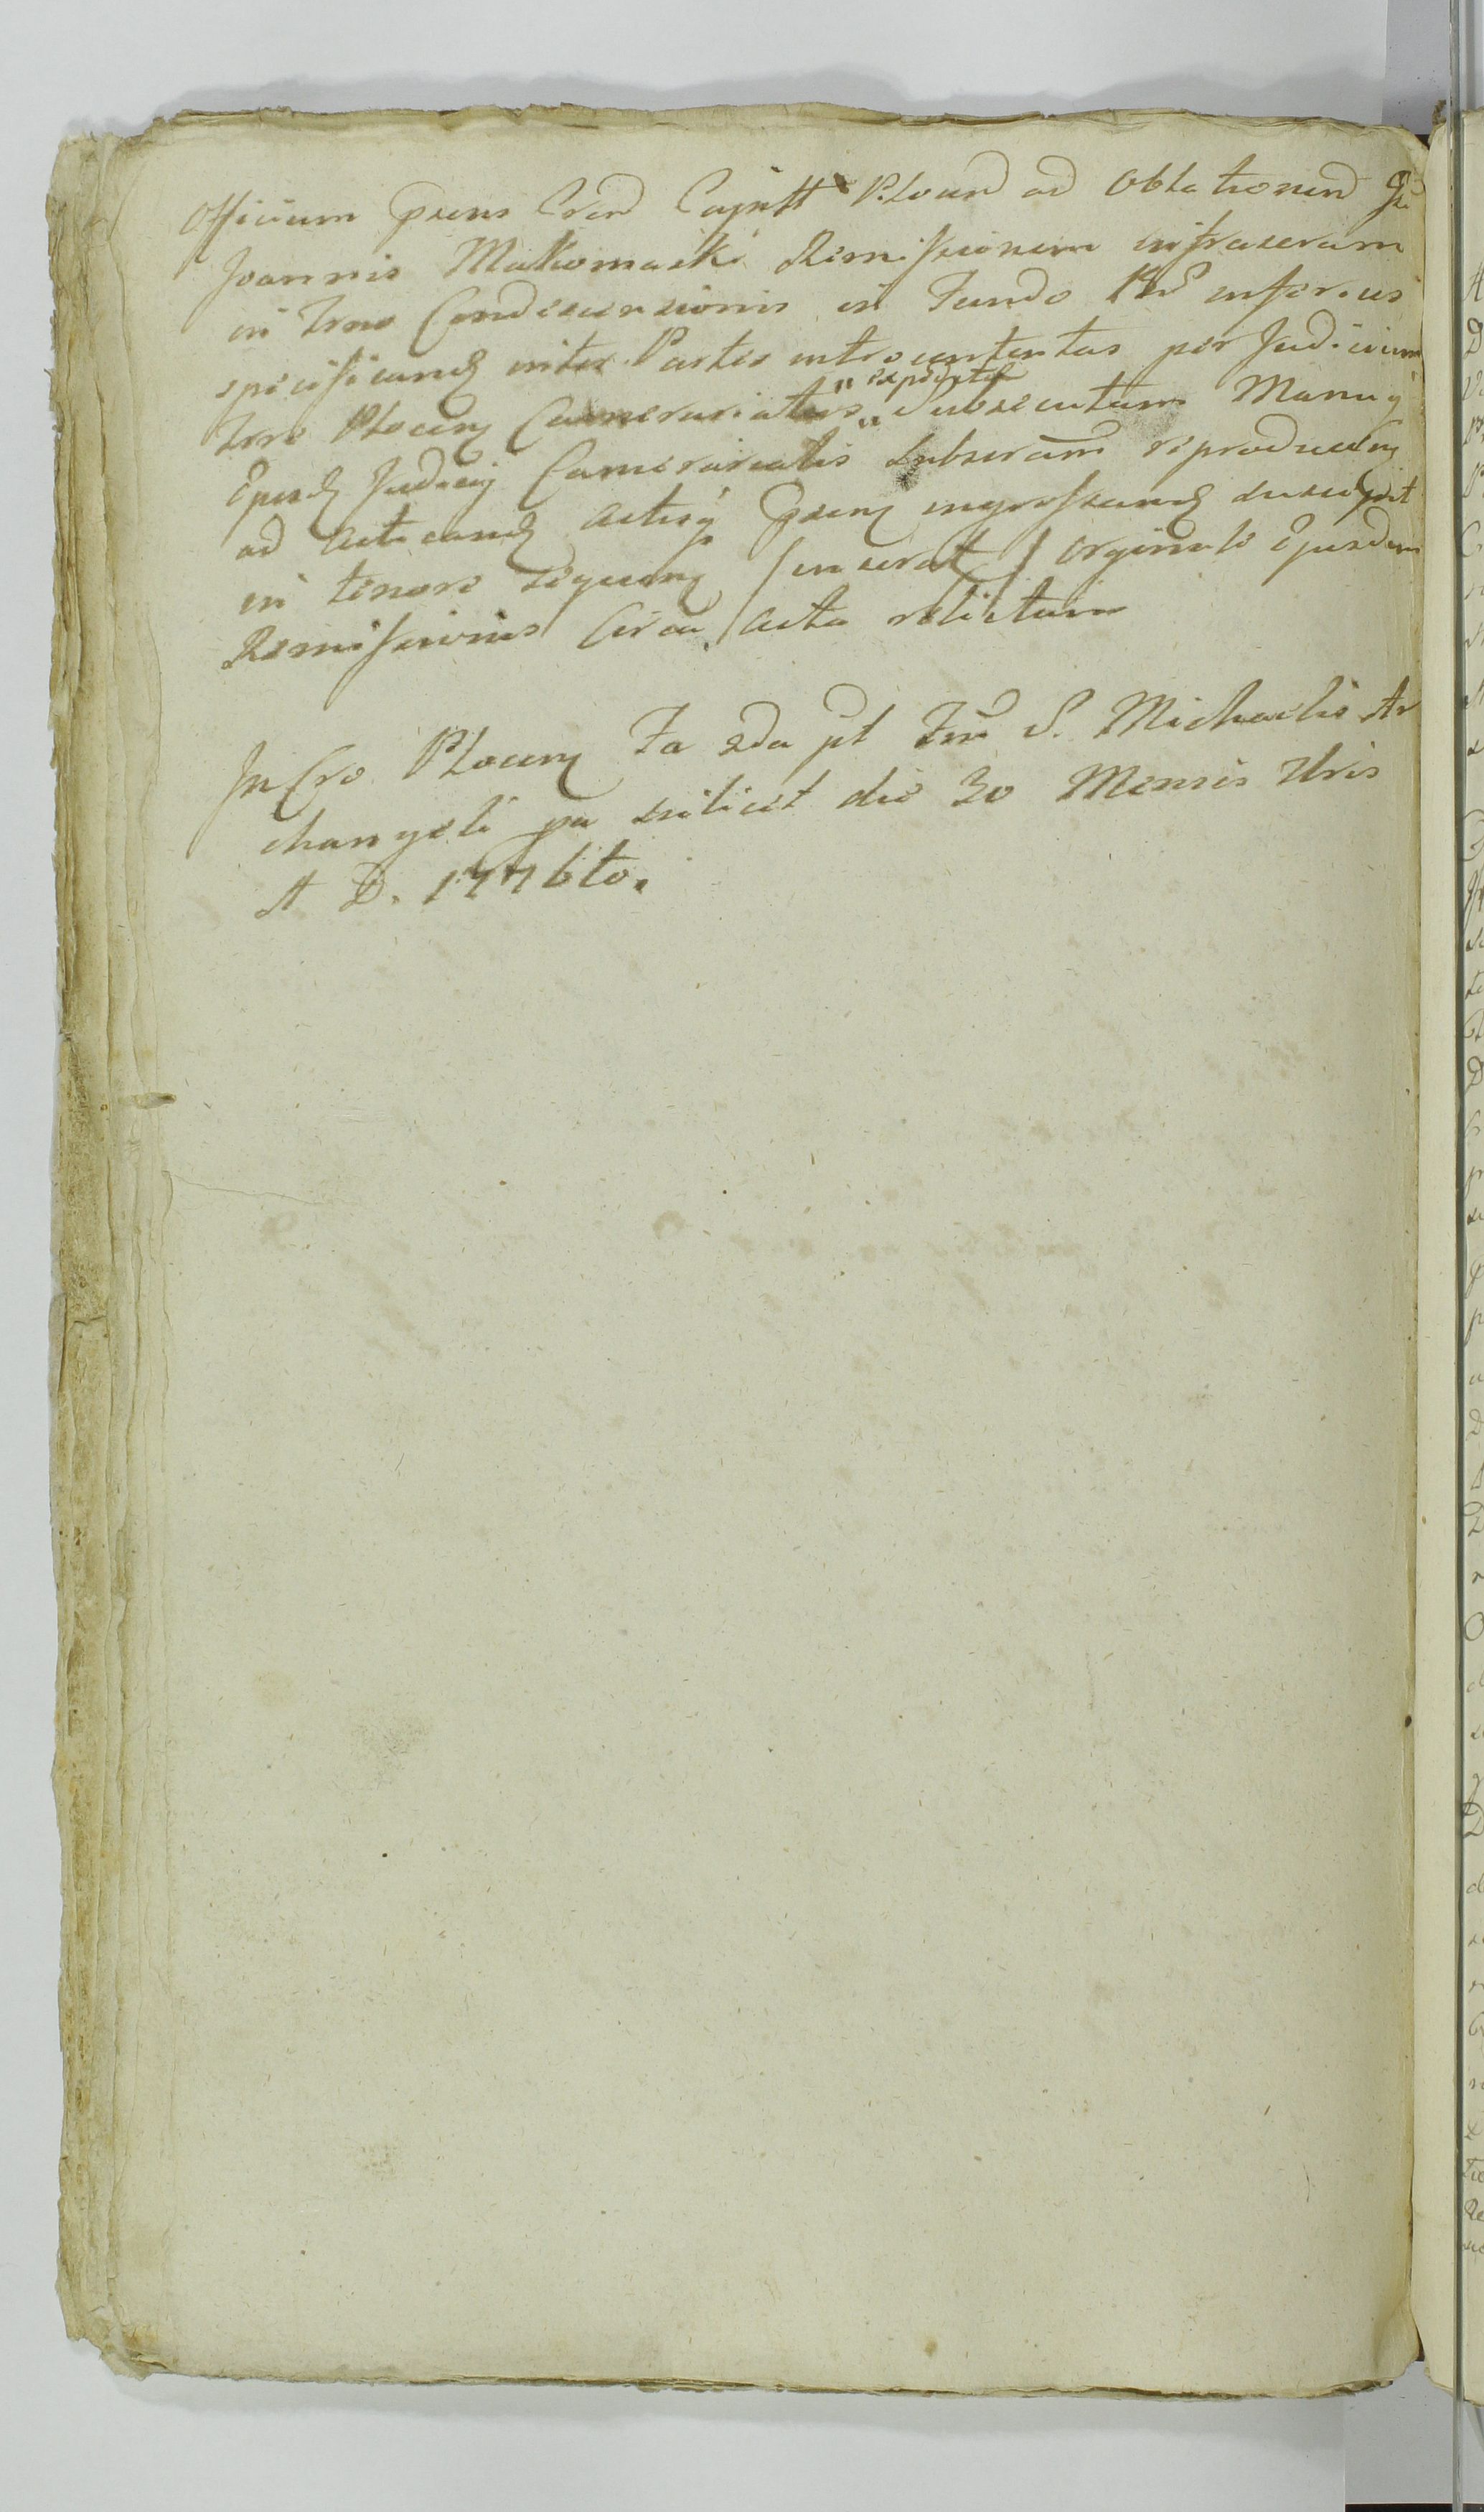 Officium Prens Cren Capitt Plocen ad Oblationem Gsi
Joannis Makomaski Remissionem infrascram
in Trno Condescensionis in Fundo Bnr inferius
specificand inter Partes introcontentas per Judicium
Trre Plocen Camerariatus " expedit " Subsecutam Manuq
Ejusd Judicij Camerarialis Subscram reproducen
ad acticand Actisq Prens ingrossand suscepit
in tenore sequen / inserat / orginale Ejusdem
Remissionis Circa Acta relictum
In Cro Plocen Fa 2da pt Fm S. Michaelis Ar
changeli pa scilicet die 30 Mensis 7bris
A D. 1776to.